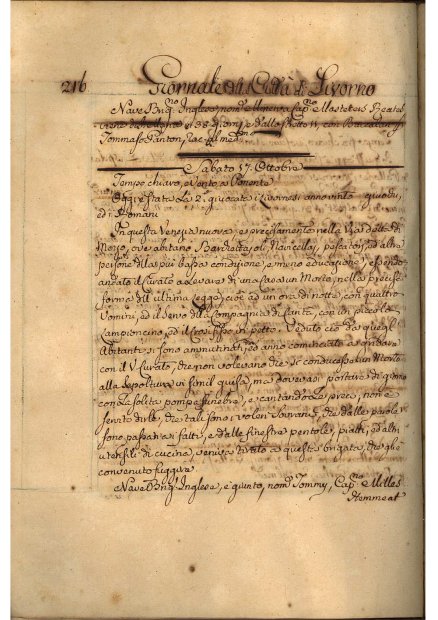 216 Giornale di Città di Livorno
Nave Brig.no Inglese, nom.
Tommaso Panton, rac. al med.mo
Sabato 17. Ottobre
Tempo chiaro, e Vento a Ponente
Oggi è stato la 2. giuocata i Livornesi anno vinto
ed i Romani
In questa Venezia nuova, e precisamente nella Via detta di
Mezzo, ove abitano Bardotti, oli Navicellaj, pescatori, ed altre
persone di la più bassa condizione, e meno educazione, essendo
andato il Curato a levare di una Casa un Morto, nella precisa
forma dell ultima Legge, cioè ad un ora di notte, con quattro
Uomini, ed il Servo della Compagnia di Sante, con un piccolo
Campioncino, ed il Crocifisso in petto. Veduto ciò da quegl
Abitanti si sono ammutinati, ed anno cominciato a gridare
con il V. Curato, che non volevano che si conducesse un Morto
alla Sepoltura in simil guisa, ma dovevasi portare di giorno
con la solita pompa funebre, e cantando le preci, non è
servito dirle, che tali sono i voleri Sovrani, che dalle parole
sono passati a fatti, e dalle finestre pentole, piatti, ed altri
utensili di cucina, veniva tirato a questa brigata, che gli è
convenuto fuggire
Nave Brig. Inglese, è giunto, nom. Tommy, Cap.no Milles
Hemmeat